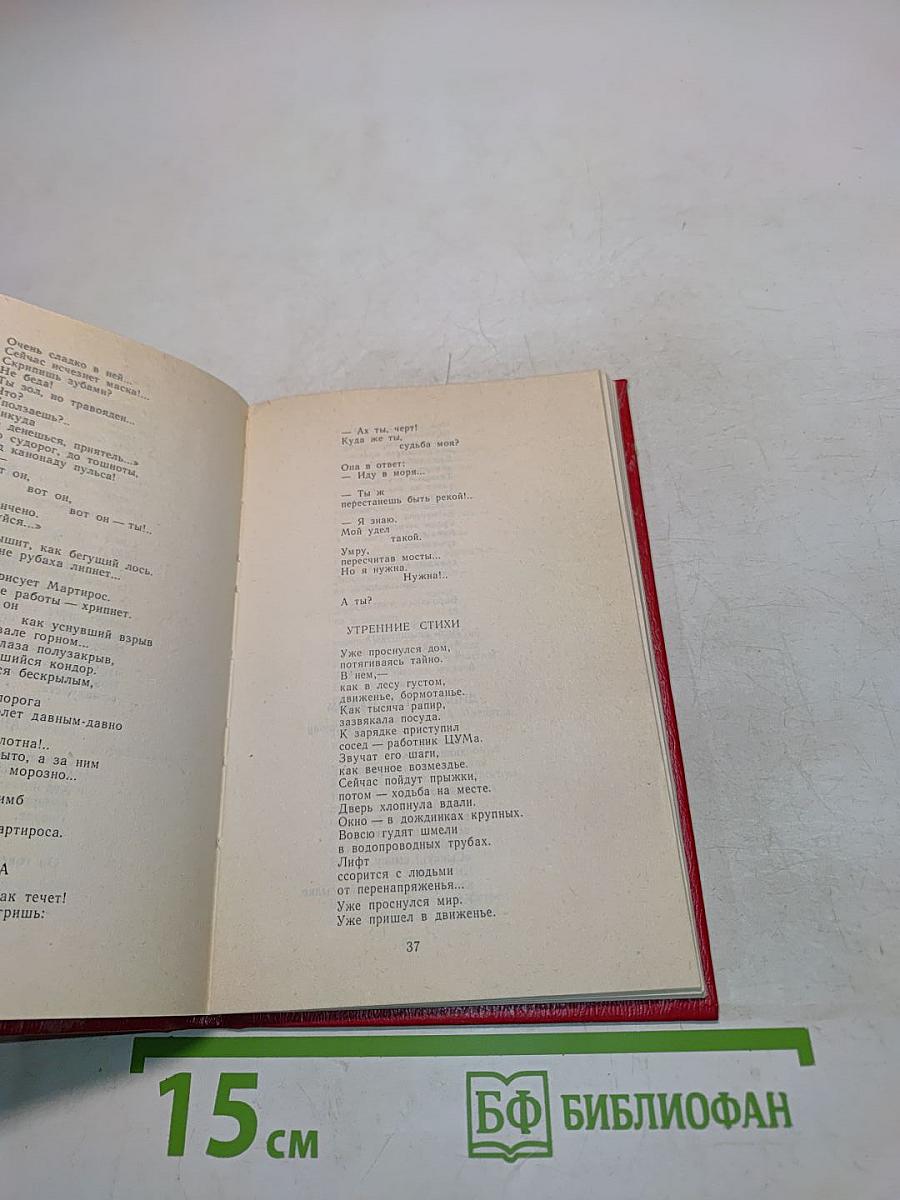 Очень сладко в ней...
Сейчас исчезнет маска!...
Скрипишь зубами?
Не беда!
Ты зол, но травояден...
Что?
ползаешь?..
икуда
денешься, приятель...»
судорог, до тошноты,
канонаду пульса!
—
т он,
вот он,
вот он — ты!..
нчено.
уйся...»
ышит, как бегущий лось.
не рубаха липнет...
рисует Мартирос.
е работы — хрипнет.
он
как уснувший взрыв
вале горном...
лаза полузакрыв,
шийся кондор.
ся бескрылым,
порога
олет давным-давно
лотна!..
ыто, а за ним
морозно...
имб
артироса.
А
ак течет!
гришь:
— Ах ты, черт!
Куда же ты,
судьба моя?
Она в ответ:
— Иду в моря...
— Ты ж
перестанешь быть рекой!..
— Я знаю.
Мой удел
такой.
Умру,
пересчитав мосты...
Но я нужна.
Нужна!..
А ты?
УТРЕННИЕ СТИХИ
Уже проснулся дом,
потягиваясь тайно.
В нем,—
как в лесу густом,
движенье, бормотанье.
Как тысяча рапир,
зазвякала посуда.
К зарядке приступил
сосед — работник ЦУМа.
Звучат его шаги,
как вечное возмездье.
Сейчас пойдут прыжки,
потом — ходьба на месте.
Дверь хлопнула вдали.
Окно — в дождинках крупных.
Вовсю гудят шмели
в водопроводных трубах.
Лифт
ссорится с людьми
от перенапряженья...
Уже проснулся мир.
Уже пришел в движенье.
37
15 см
БФ БИБЛИОФАН